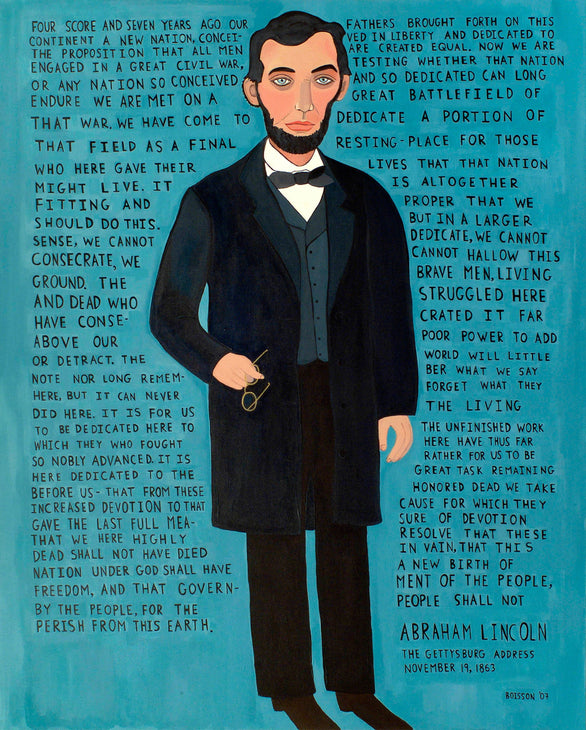 FOUR SCORE AND SEVEN YEARS AGO OUR FATHERS BROUGHT FORTH ON THIS
CONTINENT A NEW NATION, CONCEI- VED IN LIBERTY AND DEDICATED TO
THE PROPOSITION THAT ALL MEN ARE CREATED EQUAL. NOW WE ARE
ENGAGED IN A GREAT CIVIL WAR, TESTING WHETHER THAT NATION
OR ANY NATION SO CONCEIVED AND SO DEDICATED CAN LONG
ENDURE WE ARE MET ON A GREAT BATTLEFIELD OF
THAT WAR. WE HAVE COME TO DEDICATE A PORTION OF
THAT FIELD AS A FINAL RESTING-PLACE FOR THOSE
WHO HERE GAVE THEIR LIVES THAT THAT NATION
MIGHT LIVE. IT IS ALTOGETHER
FITTING AND PROPER THAT WE
SHOULD DO THIS. BUT IN A LARGER
SENSE, WE CANNOT DEDICATE, WE CANNOT
CONSECRATE, WE CANNOT HALLOW THIS
GROUND. THE BRAVE MEN, LIVING
AND DEAD WHO STRUGGLED HERE
HAVE CONSE- CRATED IT FAR
ABOVE OUR POOR POWER TO ADD
OR DETRACT. THE WORLD WILL LITTLE
NOTE NOR LONG REMEM- BER WHAT WE SAY
HERE, BUT IT CAN NEVER FORGET WHAT THEY
DID HERE. IT IS FOR US THE LIVING
TO BE DEDICATED HERE TO THE UNFINISHED WORK
WHICH THEY WHO FOUGHT HERE HAVE THUS FAR
SO NOBLY ADVANCED. IT IS RATHER FOR US TO BE
HERE DEDICATED TO THE GREAT TASK REMAINING
BEFORE US- THAT FROM THESE HONORED DEAD WE TAKE
INCREASED DEVOTION TO THAT CAUSE FOR WHICH THEY
GAVE THE LAST FULL MEA- SURE OF DEVOTION
THAT WE HERE HIGHLY RESOLVE THAT THESE
DEAD SHALL NOT HAVE DIED IN VAIN, THAT THIS
NATION UNDER GOD SHALL HAVE A NEW BIRTH OF
FREEDOM, AND THAT GOVERN- MENT OF THE PEOPLE,
BY THE PEOPLE, FOR THE PEOPLE SHALL NOT
PERISH FROM THIS EARTH.
ABRAHAM LINCOLN
THE GETTYSBURG ADDRESS
NOVEMBER 19, 1863
BOISSON '07